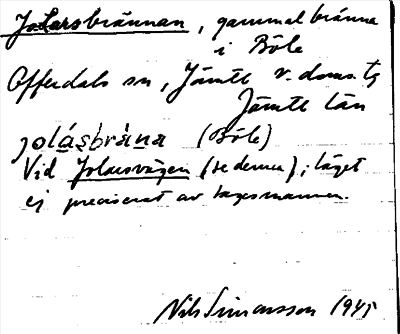 Jolarsbrännan, gammal bränna
i Böle
Offerdals sn, Jämtl v. doms. tg
Jämtl län
jolásbrána (Böle)
Vid Jolarsvägen (se denna), läget
ej preciserat av sagesmannen.
Nils Simonsson 1945